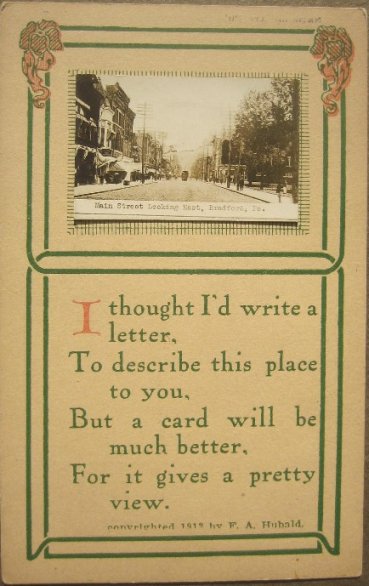 Main Street Looking East, Bradford, Pa.
I thought I'd write a
letter,
To describe this place
to you,
But a card will be
much better,
For it gives a pretty
view.
copyrighted 1912 by F. A. Hubald.